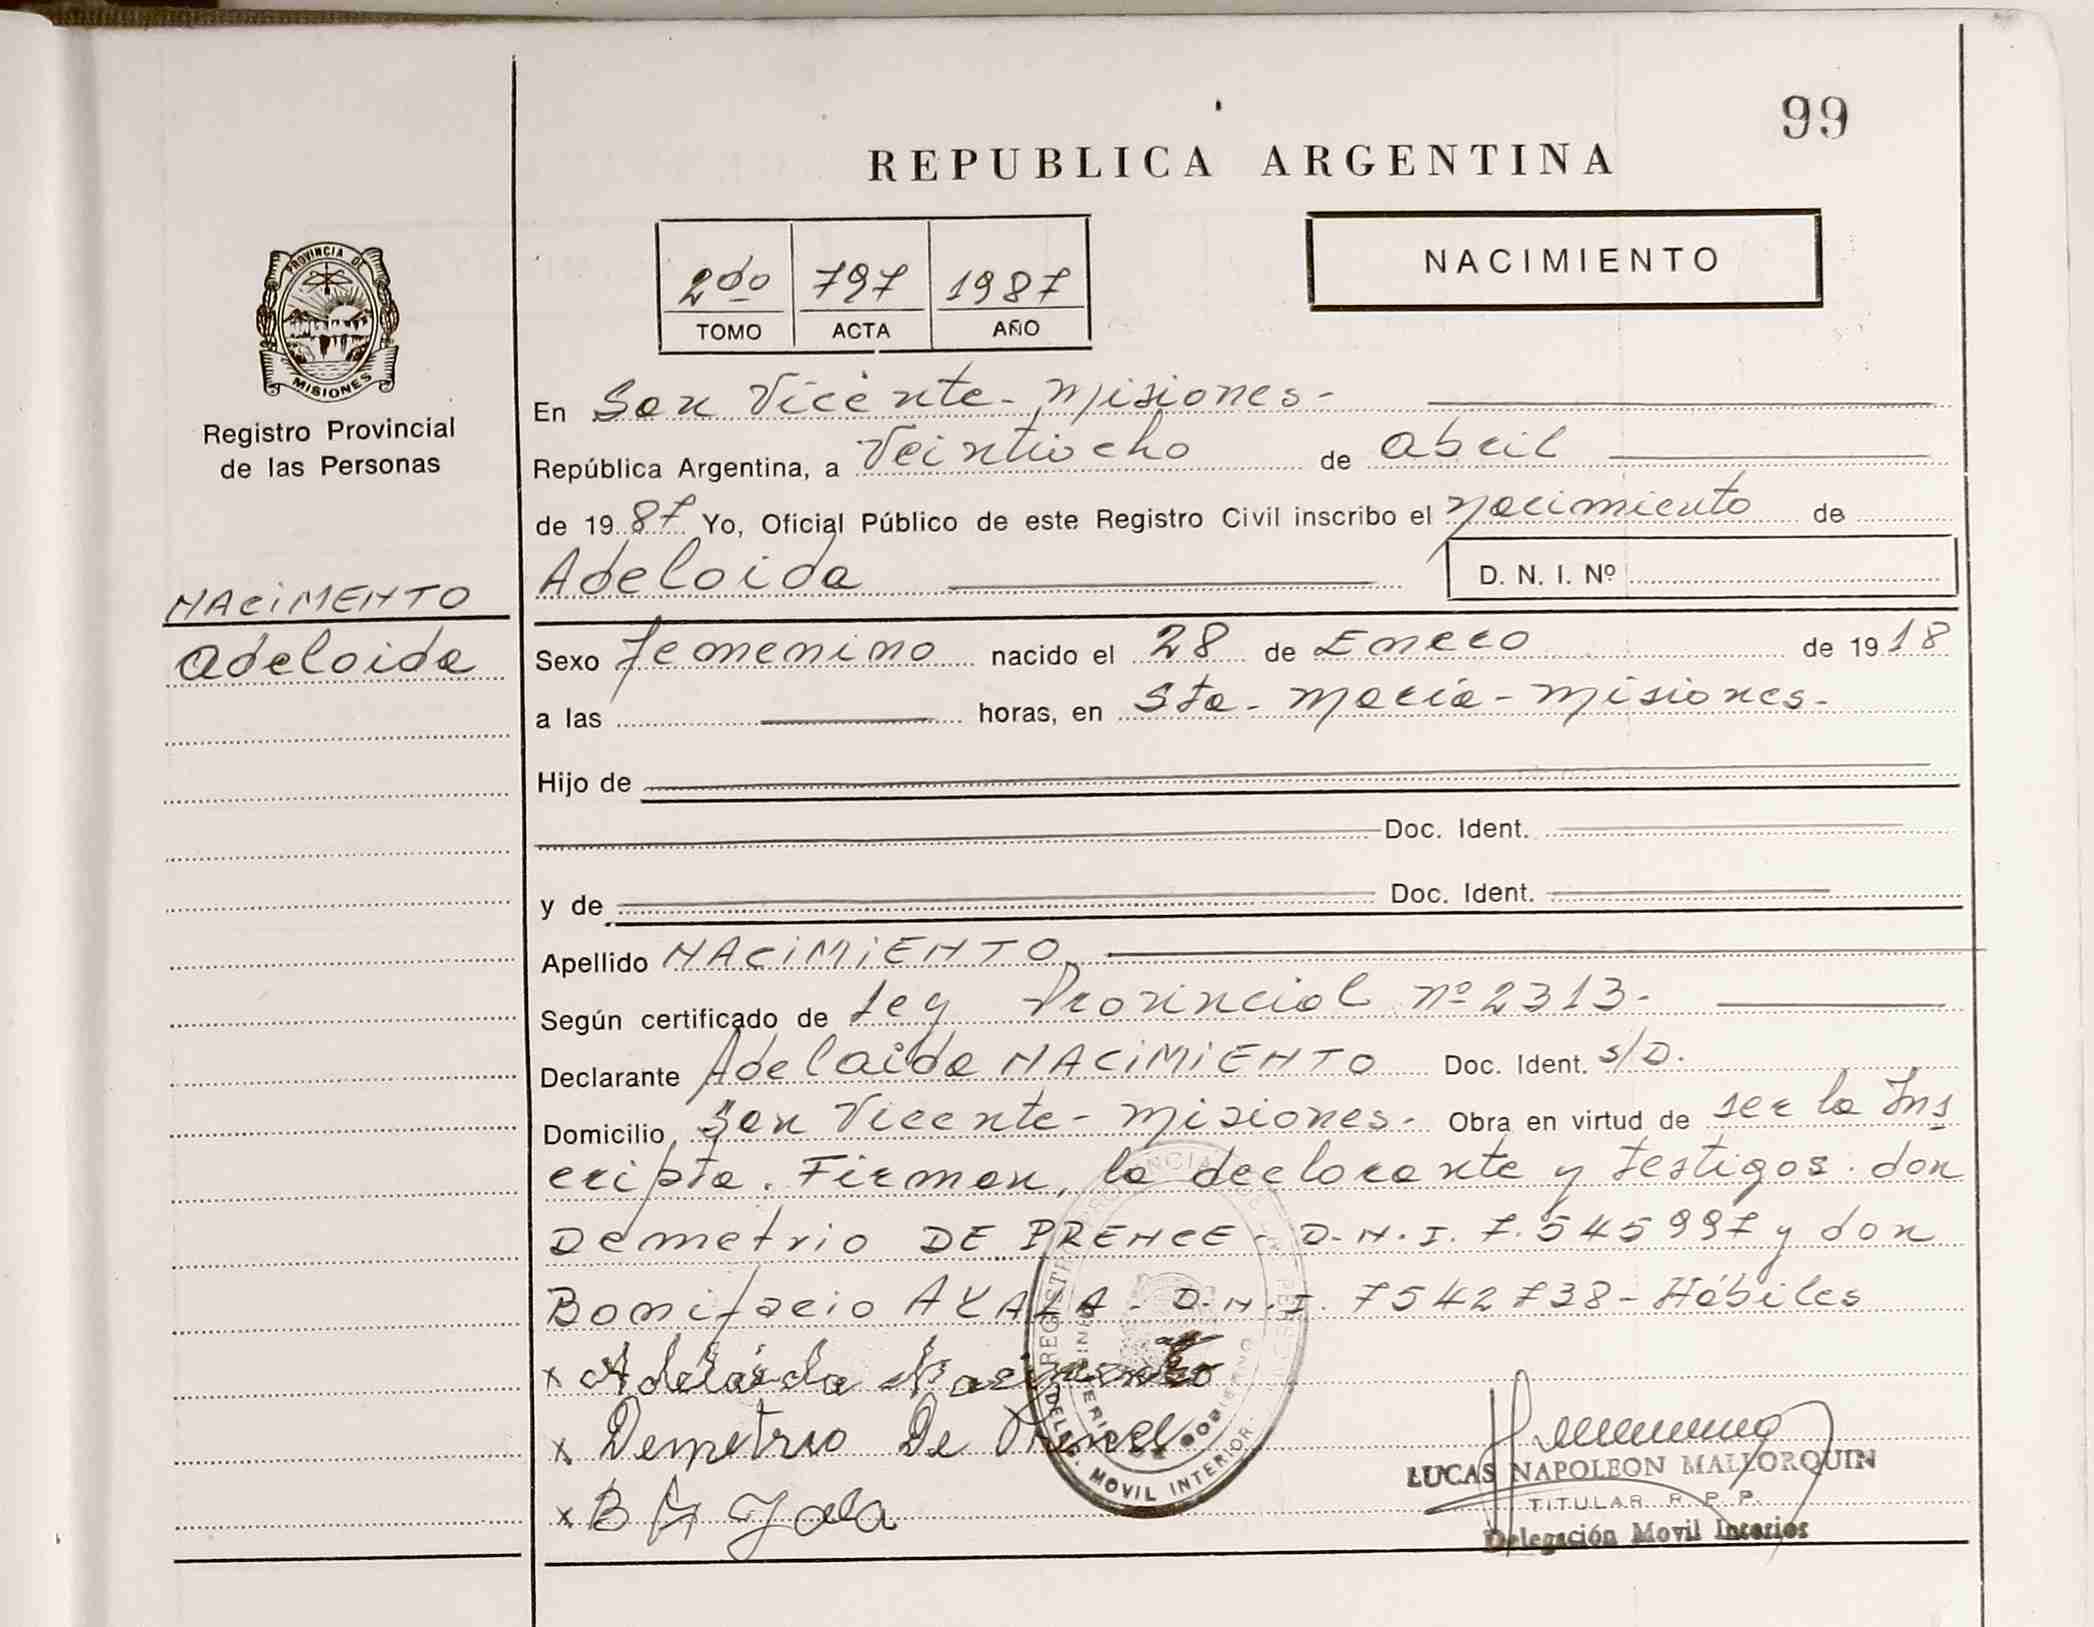 99
REPUBLICA ARGENTINA
2do 797 1987
TOMO ACTA AÑO
NACIMIENTO
PROVINCIA DE
MISIONES
Registro Provincial
de las Personas
NACIMENTO
Adelaida
En San Vicente - Misiones -
República Argentina, a Veintiocho de Abril
de 19 87 Yo, Oficial Público de este Registro Civil inscribo el Nacimiento de
Adelaida D. N. I. Nº
Sexo femenino nacido el 28 de Enero de 19 18
a las horas, en Sta. María - Misiones -
Hijo de
Doc. Ident.
y de Doc. Ident.
Apellido NACIMIENTO
Según certificado de Ley Provincial nº 2313 -
Declarante Adelaida NACIMIENTO Doc. Ident. s/D.
Domicilio San Vicente - Misiones - Obra en virtud de ser la Ins
cripta. Firman, la declarante y testigos. don
Demetrio DE PRENCE - D.N.I. 7.545997 y don
Bonifacio AYALA - D.N.I. 7542738 - Hábiles
x Adelaida Nacimento
x Demetrio De
x B Ayala
MOVIL INTERIOR
LUCAS NAPOLEON MALLORQUIN
TITULAR R. P. P.
Delegación Movil Interior